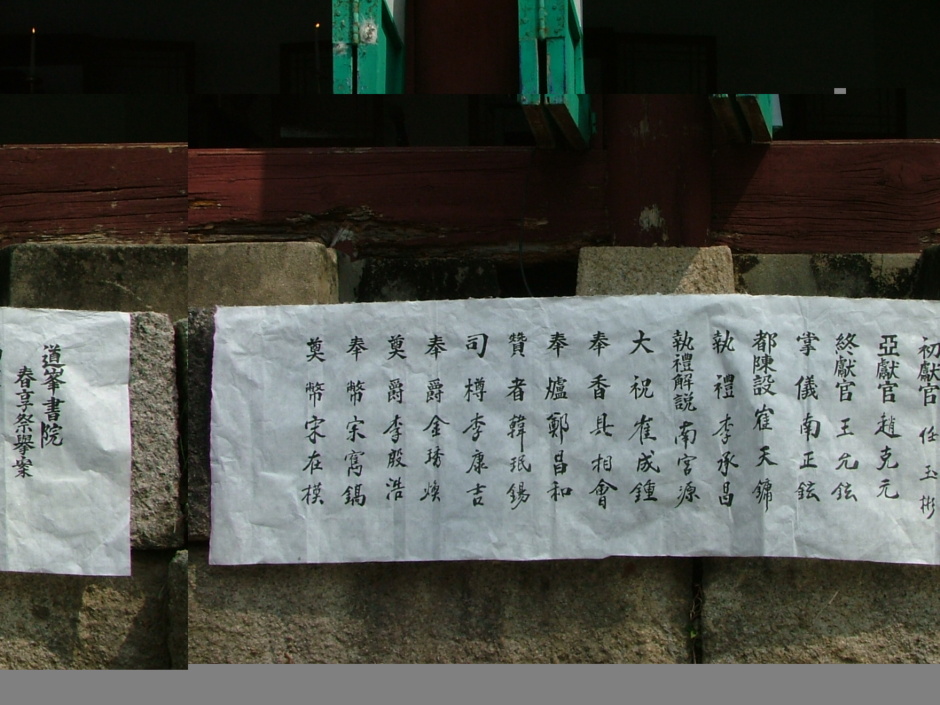 初獻官 任 玉 彬
亞獻官 趙 克 元
終獻官 王 允 鉉
掌 儀 南 正 鉉
都陳設 崔 天 鏞
執 禮 李 承 昌
執禮解説 南宮 源
大 祝 崔 成 鍾
奉 香 具 相 會
奉 爐 鄭 昌 和
贊 者 韓 珉 錫
司 樽 李 康 吉
奉 爵 金 琇 煥
奠 爵 李 殷 浩
奉 幣 宋 寯 鎬
奠 幣 宋 在 模
道峯書院
春享祭擧案